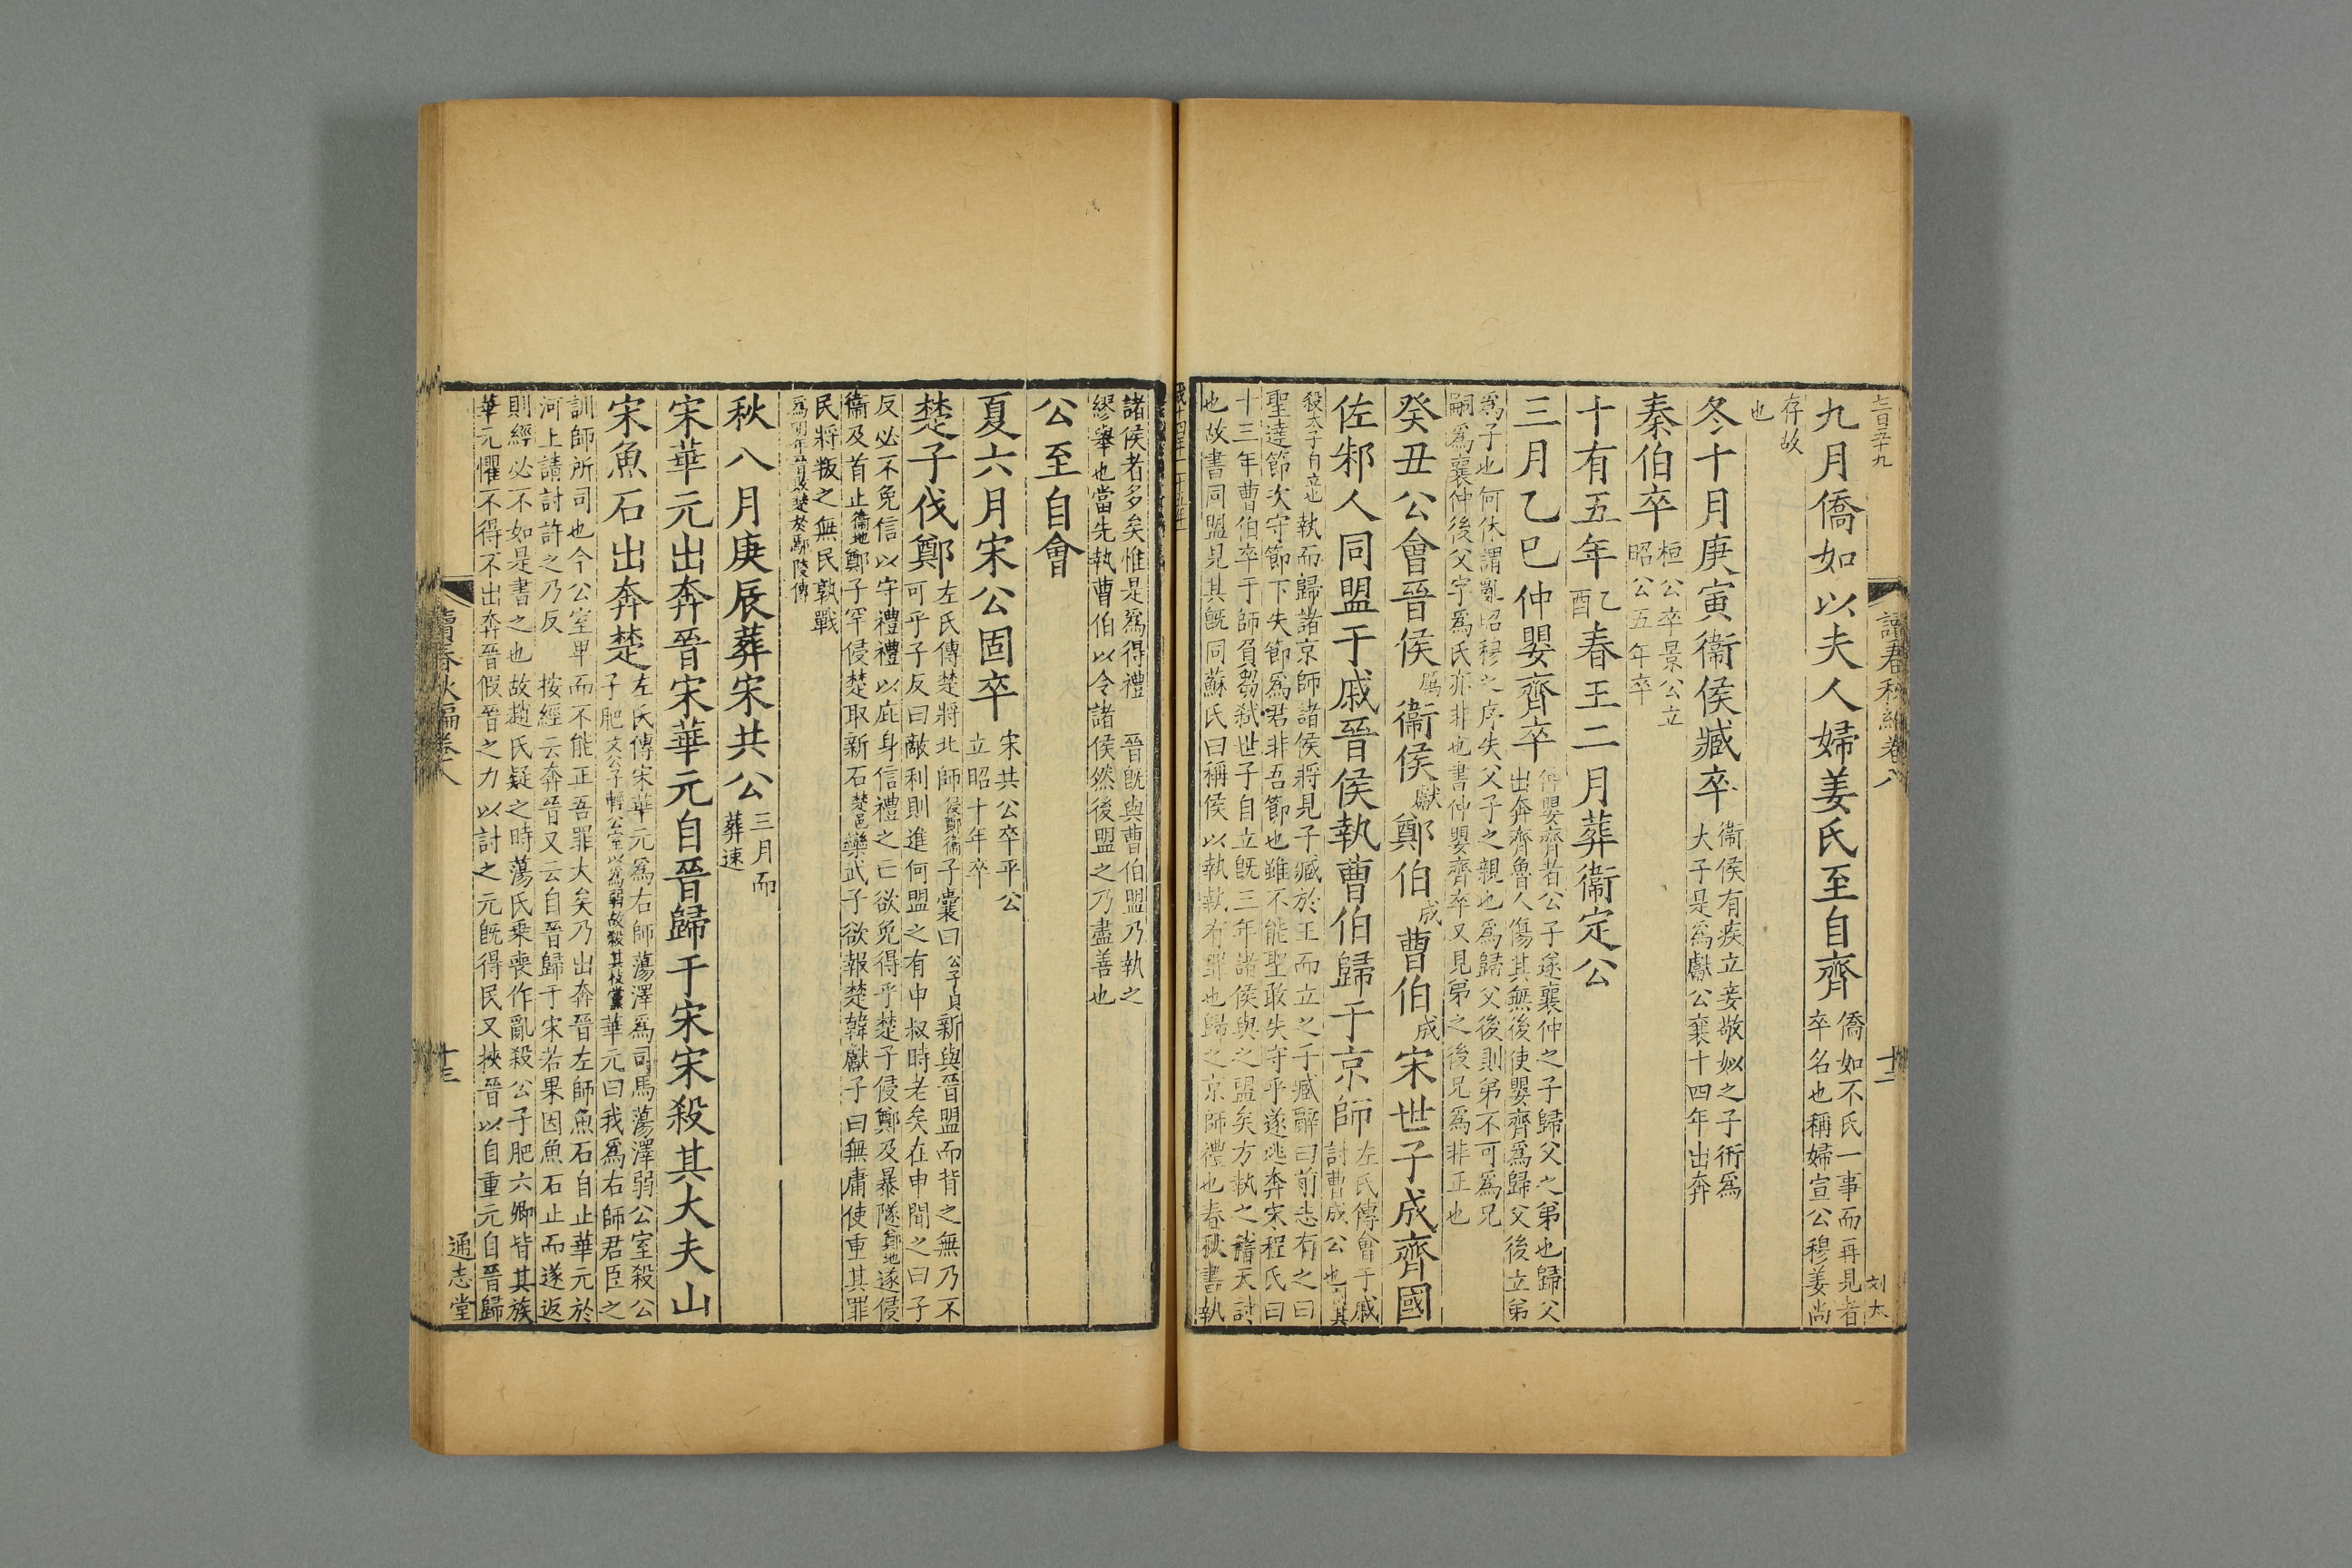 二百五十九
讀春秋編卷八
十二
刘太
九月僑如以夫人婦姜氏至自齊
僑如不氏一事而再見者
卒名也稱婦宣公穆姜尚
存故
也
冬十月庚寅衞侯臧卒
衞侯有疾立妾敬姒之子衎爲
大子是爲獻公襄十四年出奔
秦伯卒
桓公卒景公立
昭公五年卒
十有五年乙酉春王二月葬衞定公
三月乙巳仲嬰齊卒
仲嬰齊者公子遂襄仲之子歸父之弟也歸父
出奔齊魯人傷其無後使嬰齊爲歸父後立弟
爲子也何休謂亂昭穆之序失父子之親也爲歸父後則弟不可爲兄
嗣爲襄仲後父字爲氏亦非也書仲嬰齊卒又見弟之後兄爲非正也
癸丑公會晉侯厲衞侯獻鄭伯成曹伯成宋世子成齊國
佐邾人同盟于戚晉侯執曹伯歸于京師
左氏傳會于戚
討曹成公也其
殺太子自立也執而歸諸京師諸侯將見子臧於王而立之子臧辭曰前志有之曰
聖達節次守節下失節爲君非吾節也雖不能聖敢失守乎遂逃奔宋程氏曰
十三年曹伯卒于師負芻弑世子自立旣三年諸侯與之盟矣方執之稽天討
也故書同盟見其旣同蘇氏曰稱侯以執執有罪也歸之京師禮也春秋書執
諸侯者多矣惟是爲得禮 晉旣與曹伯盟乃執之
繆舉也當先執曹伯以令諸侯然後盟之乃盡善也
公至自會
夏六月宋公固卒
宋共公卒平公
立昭十年卒
楚子伐鄭
左氏傳楚將北師侵鄭衞子囊曰公子貞新與晉盟而背之無乃不
可乎子反曰敵利則進何盟之有申叔時老矣在申聞之曰子
反必不免信以守禮禮以庇身信禮之亡欲免得乎楚子侵鄭及暴隧鄭地遂侵
衞及首止衞地鄭子罕侵楚取新石楚邑欒武子欲報楚韓獻子曰無庸使重其罪
民將叛之無民孰戰
爲明年晉敗楚於鄢陵傳
秋八月庚辰葬宋共公
三月而
葬速
宋華元出奔晉宋華元自晉歸于宋宋殺其大夫山
宋魚石出奔楚
左氏傳宋華元爲右師蕩澤爲司馬蕩澤弱公室殺公
子肥文公子輕公室以爲弱故殺其枝黨華元曰我爲右師君臣之
訓師所司也今公室卑而不能正吾罪大矣乃出奔晉左師魚石自止華元於
河上請討許之乃反 按經云奔晉又云自晉歸于宋若果因魚石止而遂返
則經必不如是書之也故趙氏疑之時蕩氏乗喪作亂殺公子肥六卿皆其族
華元懼不得不出奔晉假晉之力以討之元旣得民又挾晉以自重元自晉歸
讀春秋編卷八
十三
通志堂